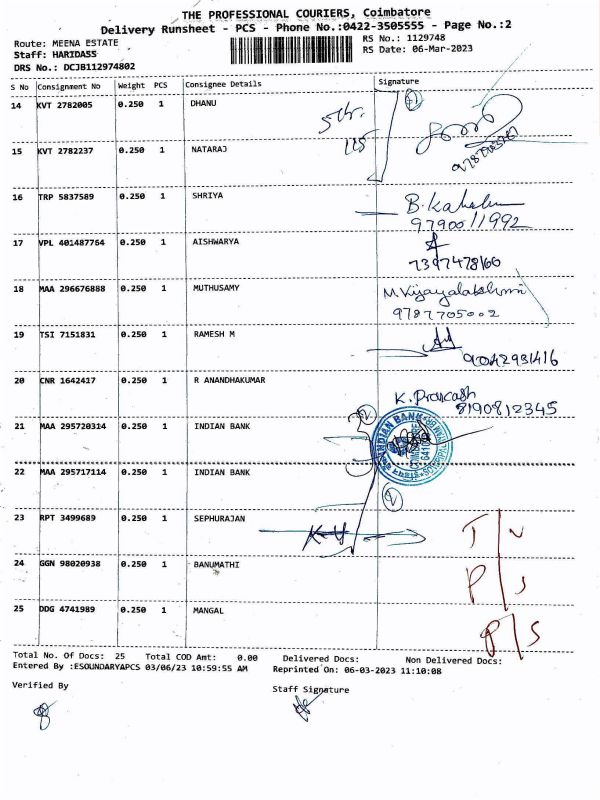 THE PROFESSIONAL COURIERS, Coimbatore
Delivery Runsheet - PCS - Phone No.:0422-3505555 - Page No.:2
Route: MEENA ESTATE
RS No.: 1129748
Staff: HARIDASS
RS Date: 06-Mar-2023
DRS No.: DCJB112974802
S No Consignment No Weight PCS Consignee Details Signature
14 KVT 2782005 0.250 1 DHANU
15 KVT 2782237 0.250 1 NATARAJ
16 TRP 5837589 0.250 1 SHRIYA
9790011992
17 VPL 401487764 0.250 1 AISHWARYA
7397478160
18 MAA 296676888 0.250 1 MUTHUSAMY M.Vijayalakshmi
9787705002
19 TSI 7151831 0.250 1 RAMESH M
9042931416
20 CNR 1642417 0.250 1 R ANANDHAKUMAR K. Prakash
8190812345
21 MAA 295720314 0.250 1 INDIAN BANK
INDIAN BANK
22 MAA 295717114 0.250 1 INDIAN BANK
23 RPT 3499689 0.250 1 SEPHURAJAN
24 GGN 98020938 0.250 1 BANUMATHI
P/s
25 DDG 4741989 0.250 1 MANGAL
P/S
Total No. Of Docs: 25 Total COD Amt: 0.00 Delivered Docs: Non Delivered Docs:
Entered By :ESOUNDARYAPCS 03/06/23 10:59:55 AM Reprinted On: 06-03-2023 11:10:08
Verified By
Staff Signature